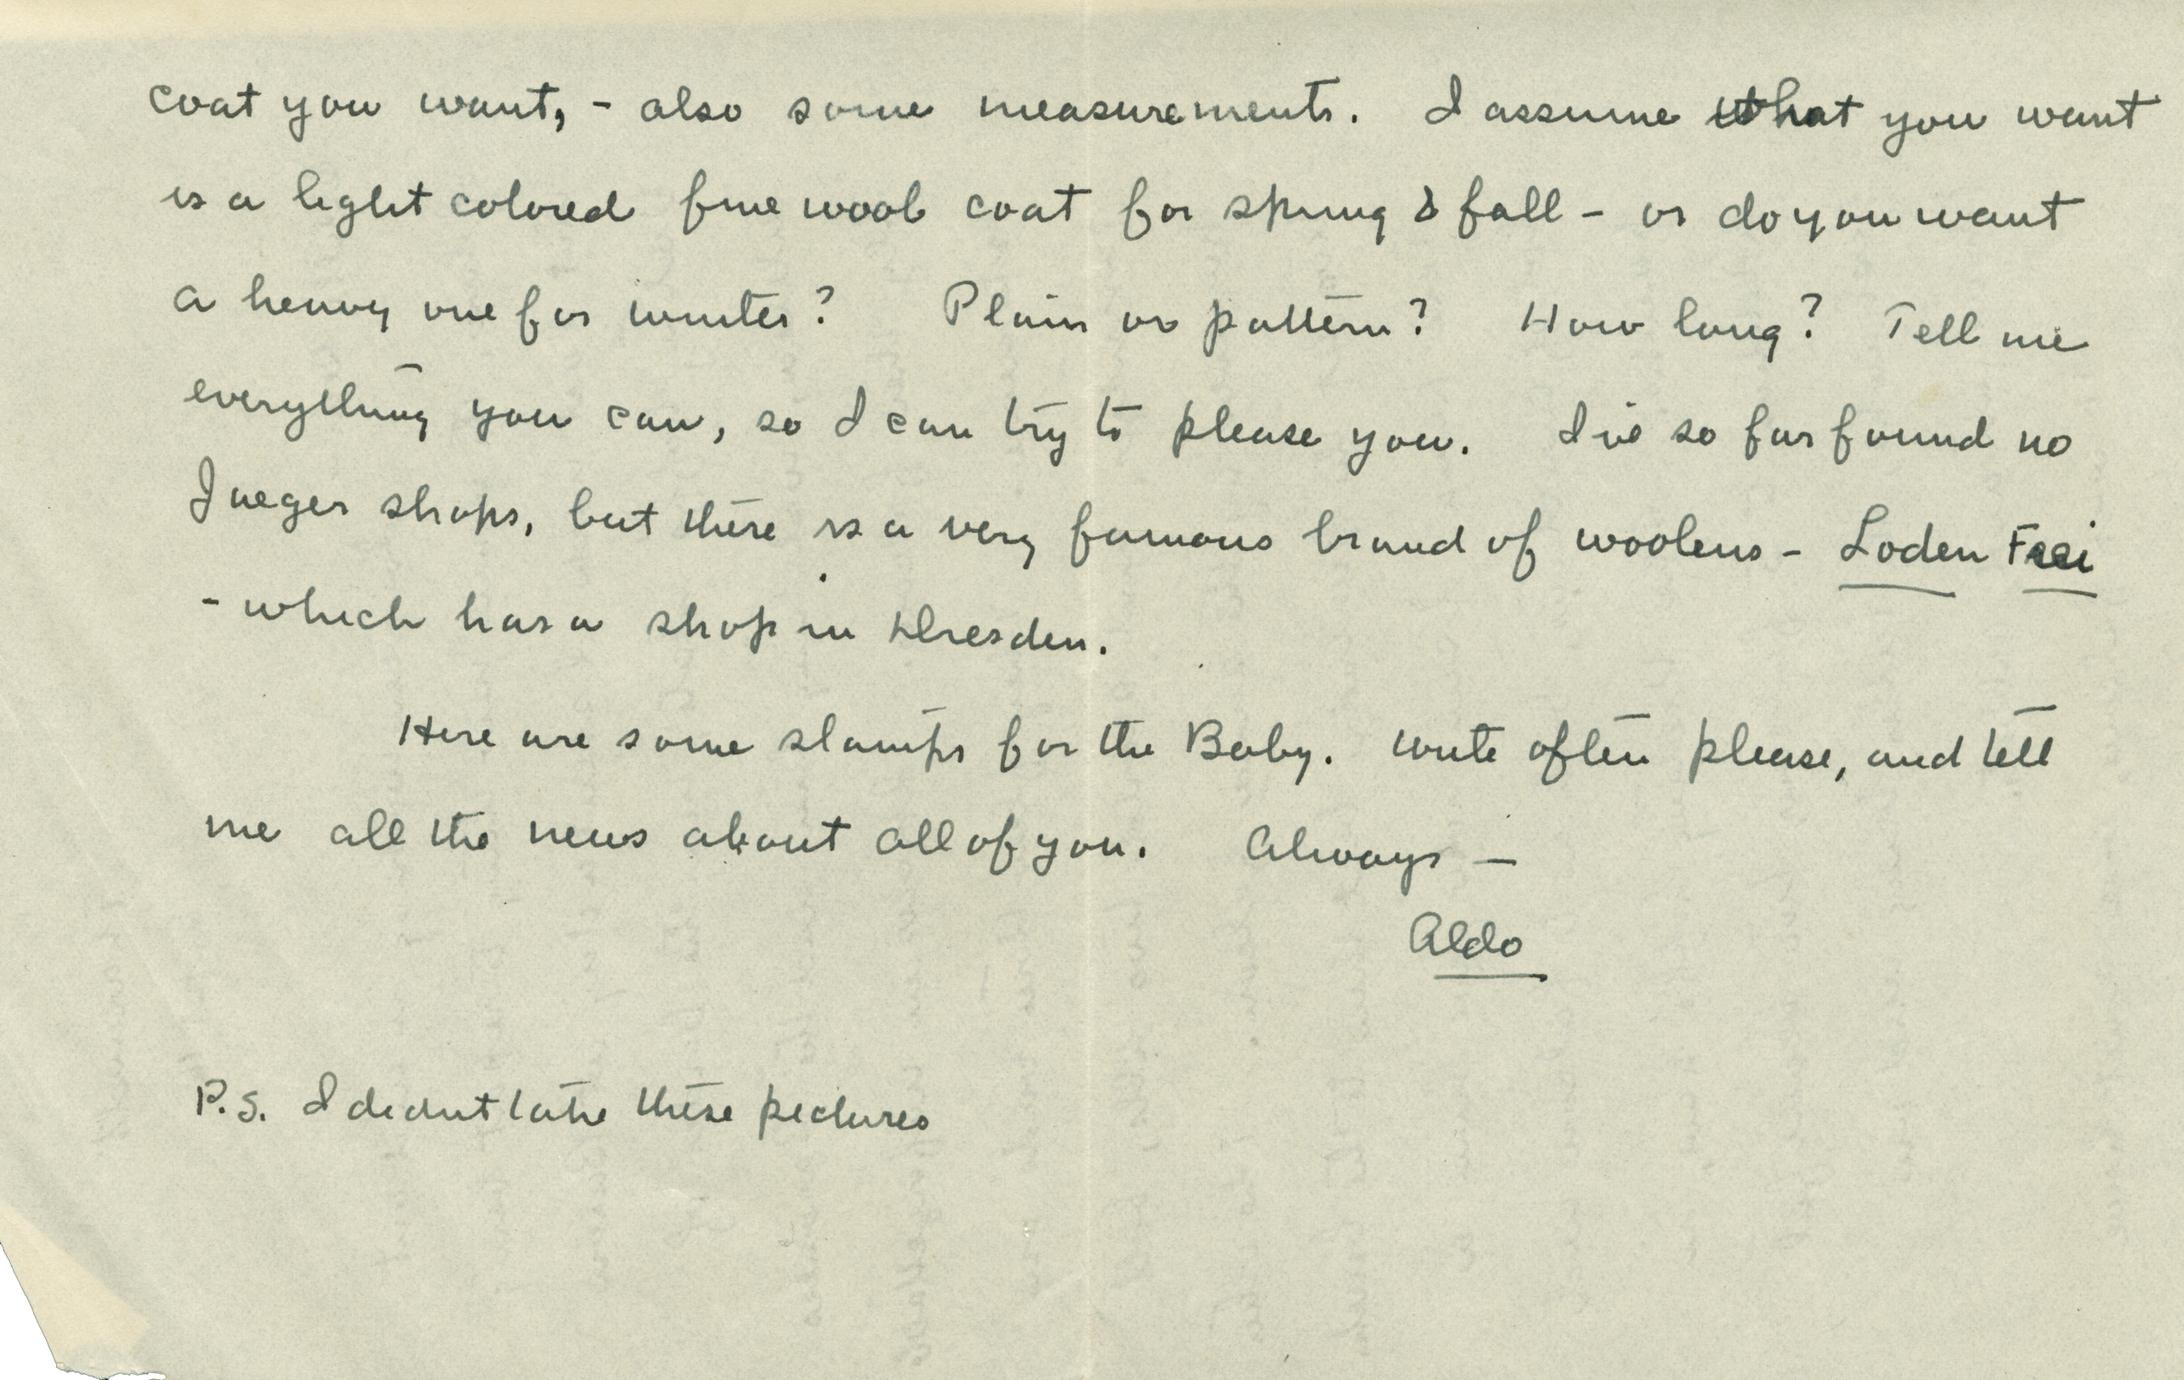 coat you want, - also some measurements. I assume what you want
is a light colored fine wool coat for spring & fall - or do you want
a heavy one for winter? Plain or pattern? How long? Tell me
everything you can, so I can try to please you. I've so far found no
Jaeger shops, but there is a very famous brand of woolens - Loden Frei
- which has a shop in Dresden.
Here are some stamps for the Baby. Write often please, and tell
me all the news about all of you. Always -
Aldo
P.S. I didnt take these pictures